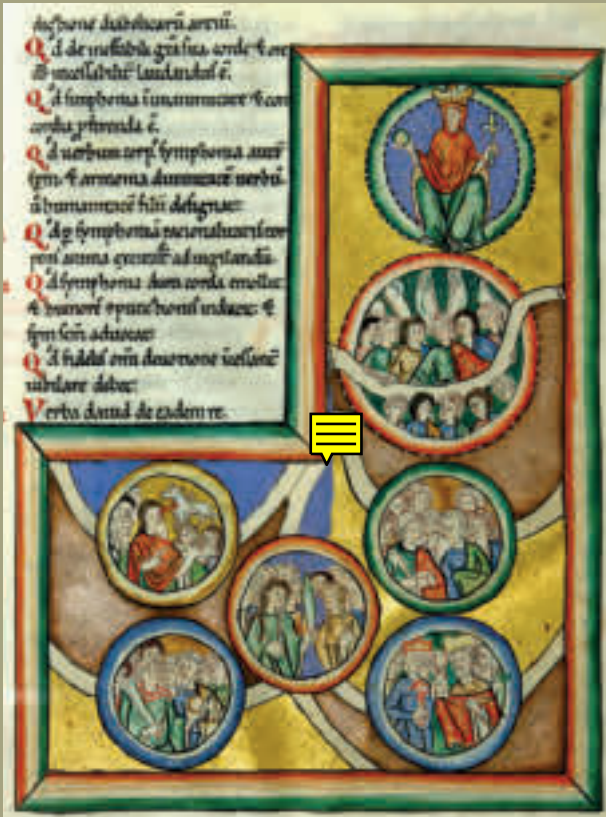 diabolicarū artiū.
Qd de ineffabili gr̄a sua corde & ore
d̄s incessabilit̄ laudandus ē.
Qd simphonia ī unanimitate & con
cordia p̄ferenda ē.
Qd uerbum corp' symphonia autē
spm̄ & armonia diuinitatē uerbū
ū humanitatē filii designat.
Qd p symphoniā racionalitatis tor
pens anima excitat' ad uigilandū.
Qd symphonia dura corda emollit
& humorē cpunctionis inducit &
spm̄ scm̄ aduocat.
Qd fidelis om̄i deuotione incessant̄
iubilare debet.
Verba dauid de eadem re.